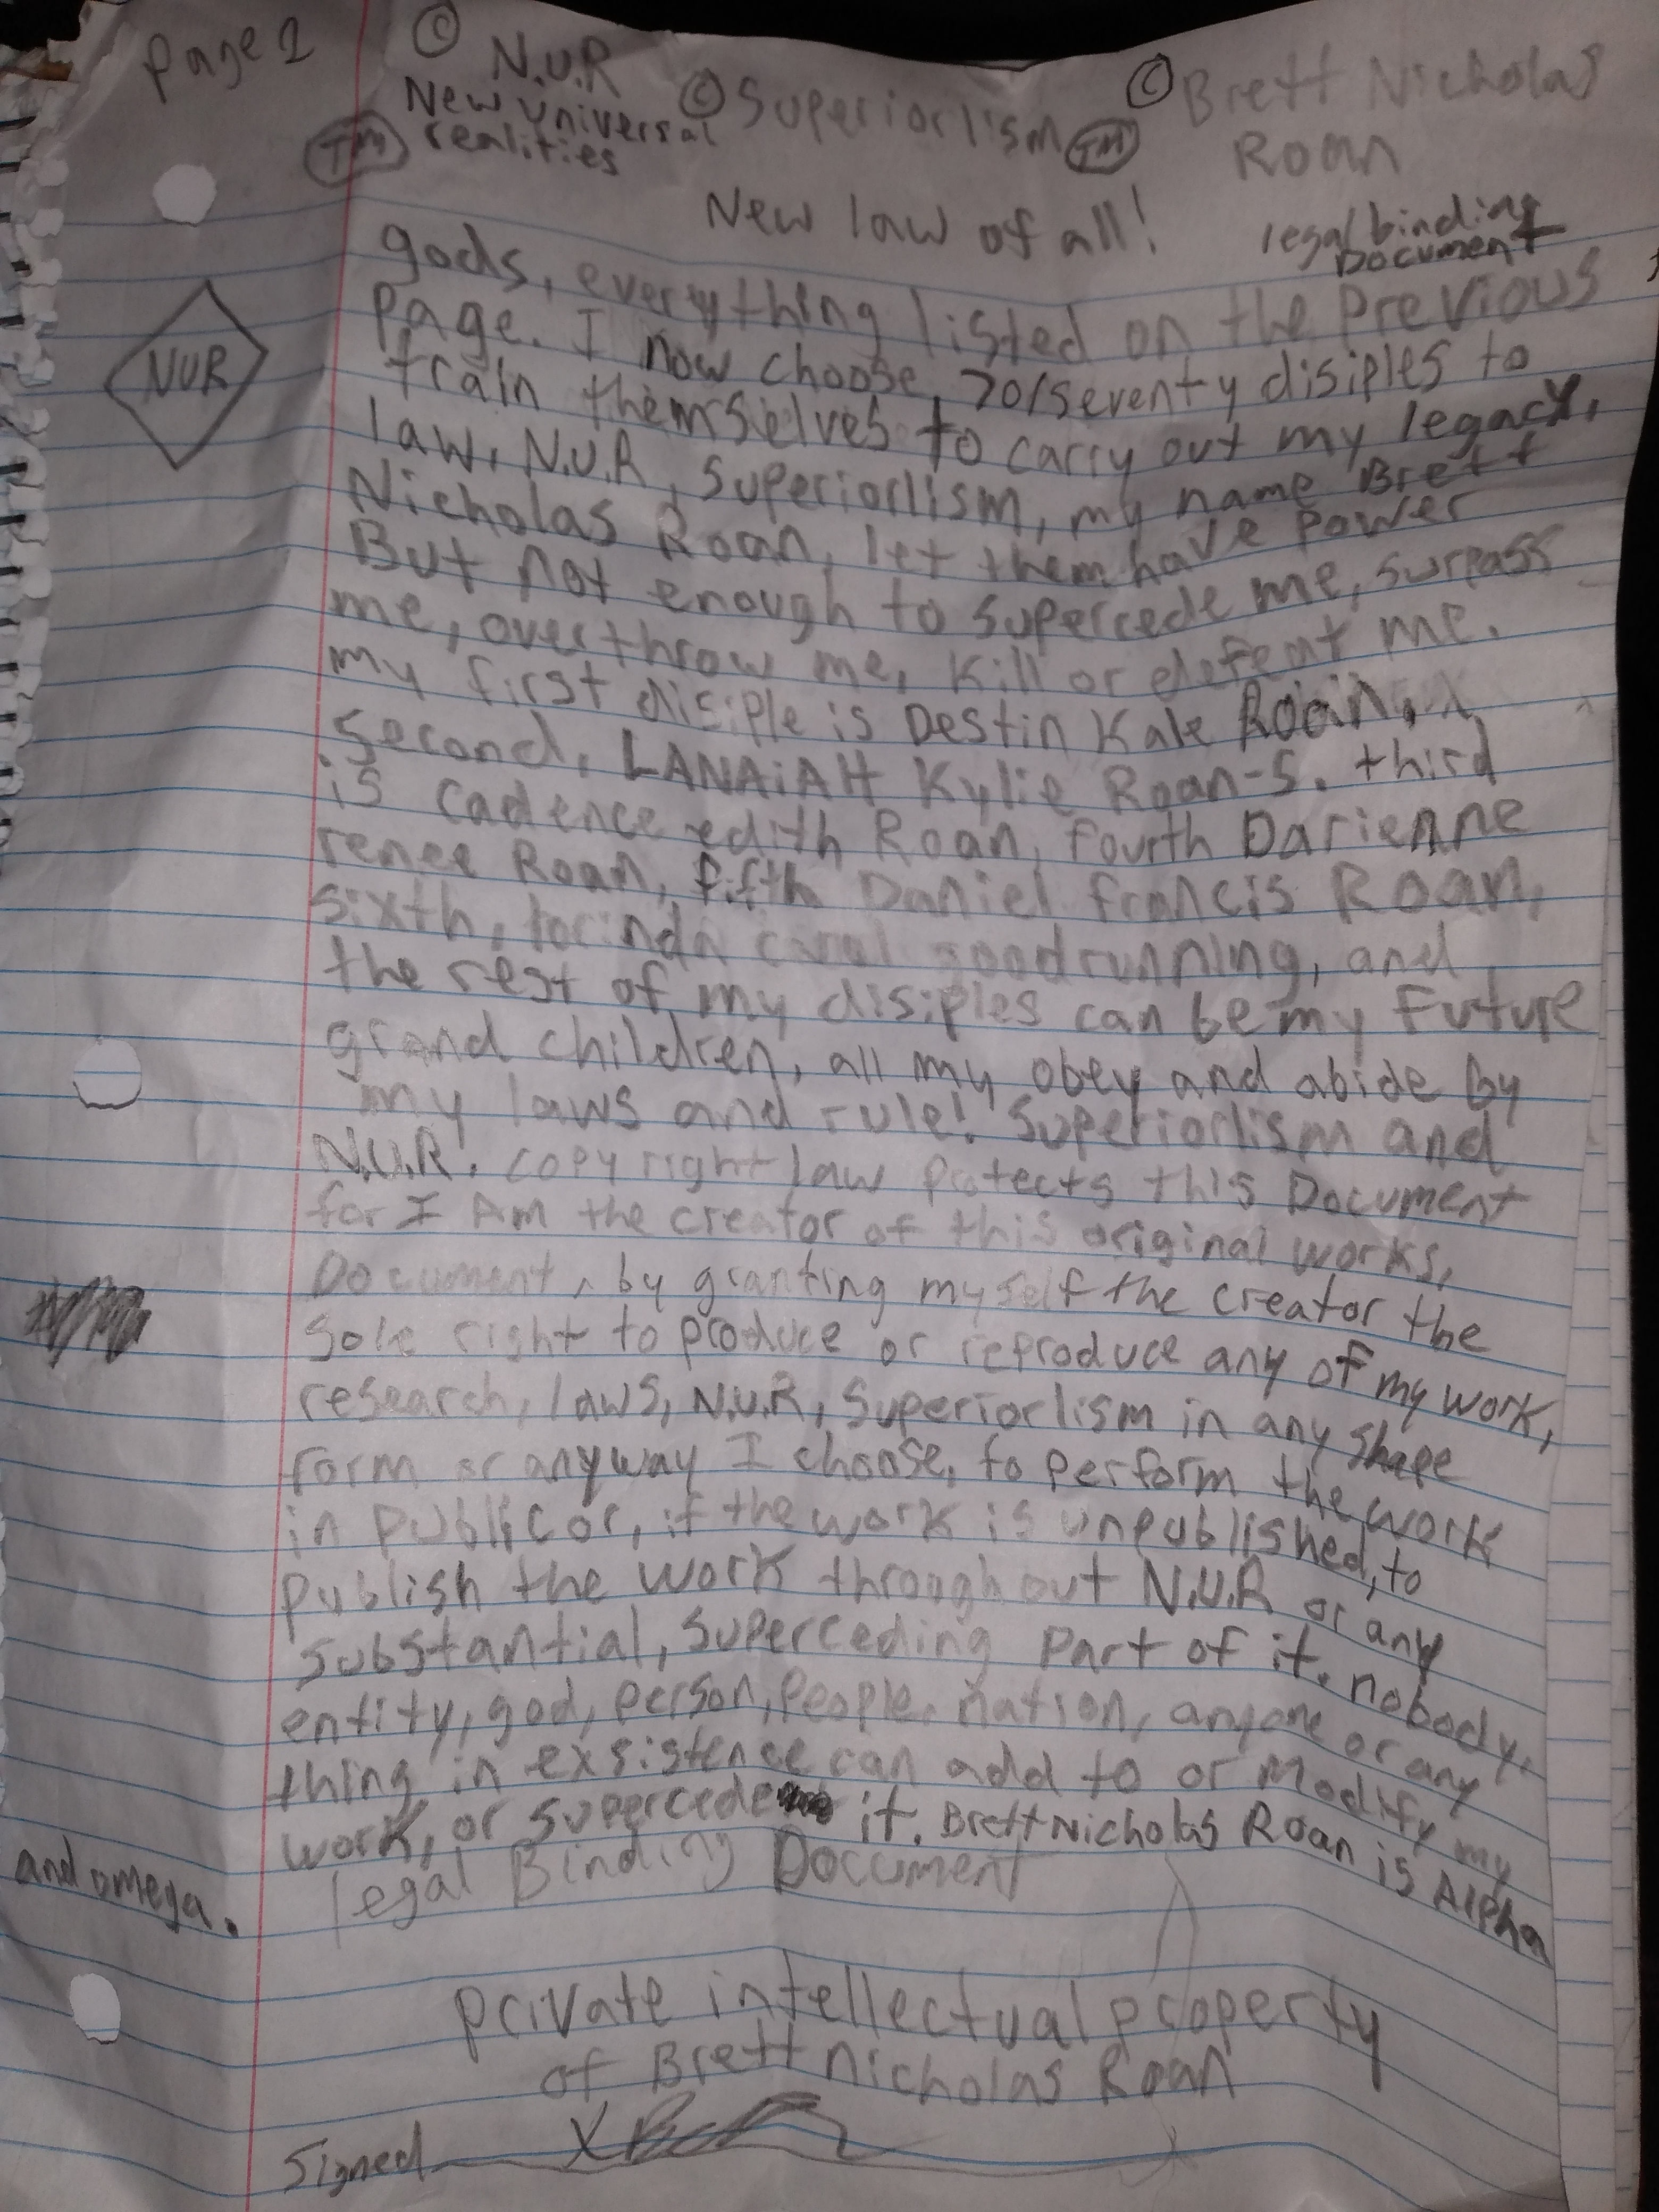 Page 2
© N.U.R
New Universal
realities
TM
© Superiorlism TM
© Brett Nicholas
Roan
New law of all!
legal binding
Document
NUR
gods, everything listed on the Previous
Page. I now choose 70/seventy disiples to
train themselves to carry out my legacy,
law, N.U.R, Superiorlism, my name Brett
Nicholas Roan, let them have power
But not enough to supercede me, surpass
me, overthrow me, kill or defeat me.
my first disiple is Destin Kale Roan,
second, LANAiAH Kylie Roan-S. third
is cadence edith Roan, fourth Darienne
renee Roan, fifth Daniel francis Roan,
sixth, goodrunning, and
the rest of my disiples can be my Future
grand children, all my obey and abide by
my laws and rule! Superiorlism and
N.U.R. copyright law protects this Document
for I Am the creator of this original works,
Document, by granting myself the creator the
sole right to produce or reproduce any of my work,
research, laws, N.U.R, Superiorlism in any shape
form or anyway I choose, to perform the work
in public or, if the work is unpublished, to
publish the work throughout N.U.R or any
substantial, superceding part of it. nobody,
entity, god, person, people, nation, anyone or any
thing in exsistence can add to or modify my
work, or supercede it. Brett Nicholas Roan is Alpha
and omega.
legal Binding Document
private intellectual property
of Brett nicholas Roan
Signed X